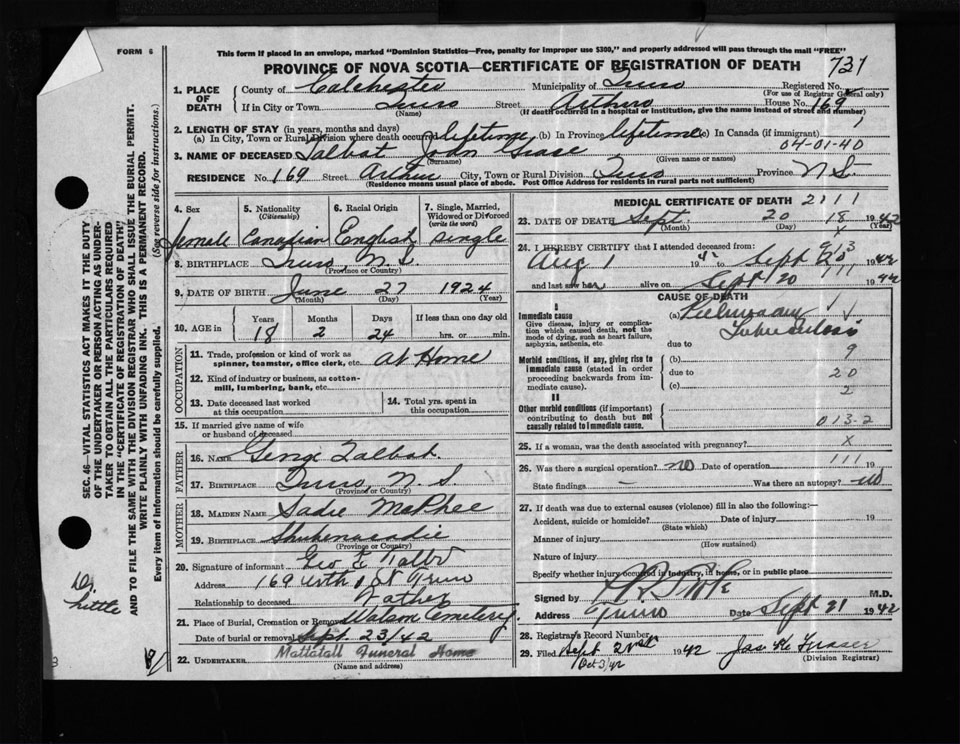 FORM 6
This form if placed in an envelope, marked "Dominion Statistics—Free, penalty for improper use $300," and properly addressed will pass through the mail "FREE"
PROVINCE OF NOVA SCOTIA—CERTIFICATE OF REGISTRATION OF DEATH 731
1. PLACE OF DEATH
County of Colchester Municipality of Truro Registered No.
(For use of Registrar General only)
If in City or Town Truro Street Arthur House No. 169
(Name) (If death occurred in a hospital or institution, give the name instead of street and number)
2. LENGTH OF STAY (in years, months and days)
(a) In City, Town or Rural Division where death occurred lifetime (b) In Province lifetime (c) In Canada (if immigrant)
04-01-40
3. NAME OF DECEASED Talbot
(Surname) (Given name or names)
RESIDENCE No. 169 Street Arthur City, Town or Rural Division Truro Province N.S.
(Residence means usual place of abode. Post Office Address for residents in rural parts not sufficient)
4. Sex
5. Nationality (Citizenship)
6. Racial Origin
7. Single, Married, Widowed or Divorced (write the word)
Female Canadian English single
8. BIRTHPLACE Truro, N.S.
(Province or Country)
9. DATE OF BIRTH June 27 1924
(Month) (Day) (Year)
10. AGE in
Years Months Days If less than one day old
18 2 24 hrs. or min.
OCCUPATION
11. Trade, profession or kind of work as spinner, teamster, office clerk, etc. At Home
12. Kind of industry or business, as cotton-mill, lumbering, bank, etc.
13. Date deceased last worked at this occupation
14. Total yrs. spent in this occupation
15. If married give name of wife or husband of deceased
FATHER
16. NAME George Talbot
17. BIRTHPLACE Truro, N.S.
(Province or Country)
MOTHER
18. MAIDEN NAME Sadie McPhee
19. BIRTHPLACE Shubenacadie
(Province or Country)
20. Signature of informant Geo E Talbot
Address 169 Arthur St Truro
Relationship to deceased Father
21. Place of Burial, Cremation or Removal Watson Cemetery
Date of burial or removal Sept. 23/42
22. UNDERTAKER Mattatall Funeral Home
(Name and address)
MEDICAL CERTIFICATE OF DEATH 2111
23. DATE OF DEATH Sept 20 18 1942
(Month) (Day) (Year)
24. I HEREBY CERTIFY that I attended deceased from
Aug 1 1942 to Sept 20 1942
and last saw her alive on Sept 20 1942
CAUSE OF DEATH
I
Immediate cause
Give disease, injury or complication which caused death, not the mode of dying, such as heart failure, asphyxia, asthenia, etc.
(a) Pulmonary Tuberculosis
due to
9
Morbid conditions, if any, giving rise to immediate cause (stated in order proceeding backwards from immediate cause)
(b)
due to 20
(c) 2
II
Other morbid conditions (if important) contributing to death but not causally related to immediate cause.
013-2
25. If a woman, was the death associated with pregnancy? X
26. Was there a surgical operation? no Date of operation 111 19
State findings — Was there an autopsy? no
27. If death was due to external causes (violence) fill in also the following:—
Accident, suicide or homicide? Date of injury 19
(State which)
Manner of injury
(How sustained)
Nature of injury
Specify whether injury occurred in industry, in home, or in public place
Signed by M.D.
Address Truro Date Sept 21 1942
28. Registrar's Record Number
29. Filed Sept 21st 1942 Jas K. Fraser
(Division Registrar)
Oct 3/42
SEC. 46—VITAL STATISTICS ACT MAKES IT THE DUTY
OF THE UNDERTAKER OR PERSON ACTING AS UNDER-
TAKER TO OBTAIN ALL THE PARTICULARS REQUIRED
IN THE "CERTIFICATE OF REGISTRATION OF DEATH"
AND TO FILE THE SAME WITH THE DIVISION REGISTRAR WHO SHALL ISSUE THE BURIAL PERMIT.
WRITE PLAINLY WITH UNFADING INK. THIS IS A PERMANENT RECORD.
Every item of Information should be carefully supplied. (See reverse side for instructions.)
Dr. Little